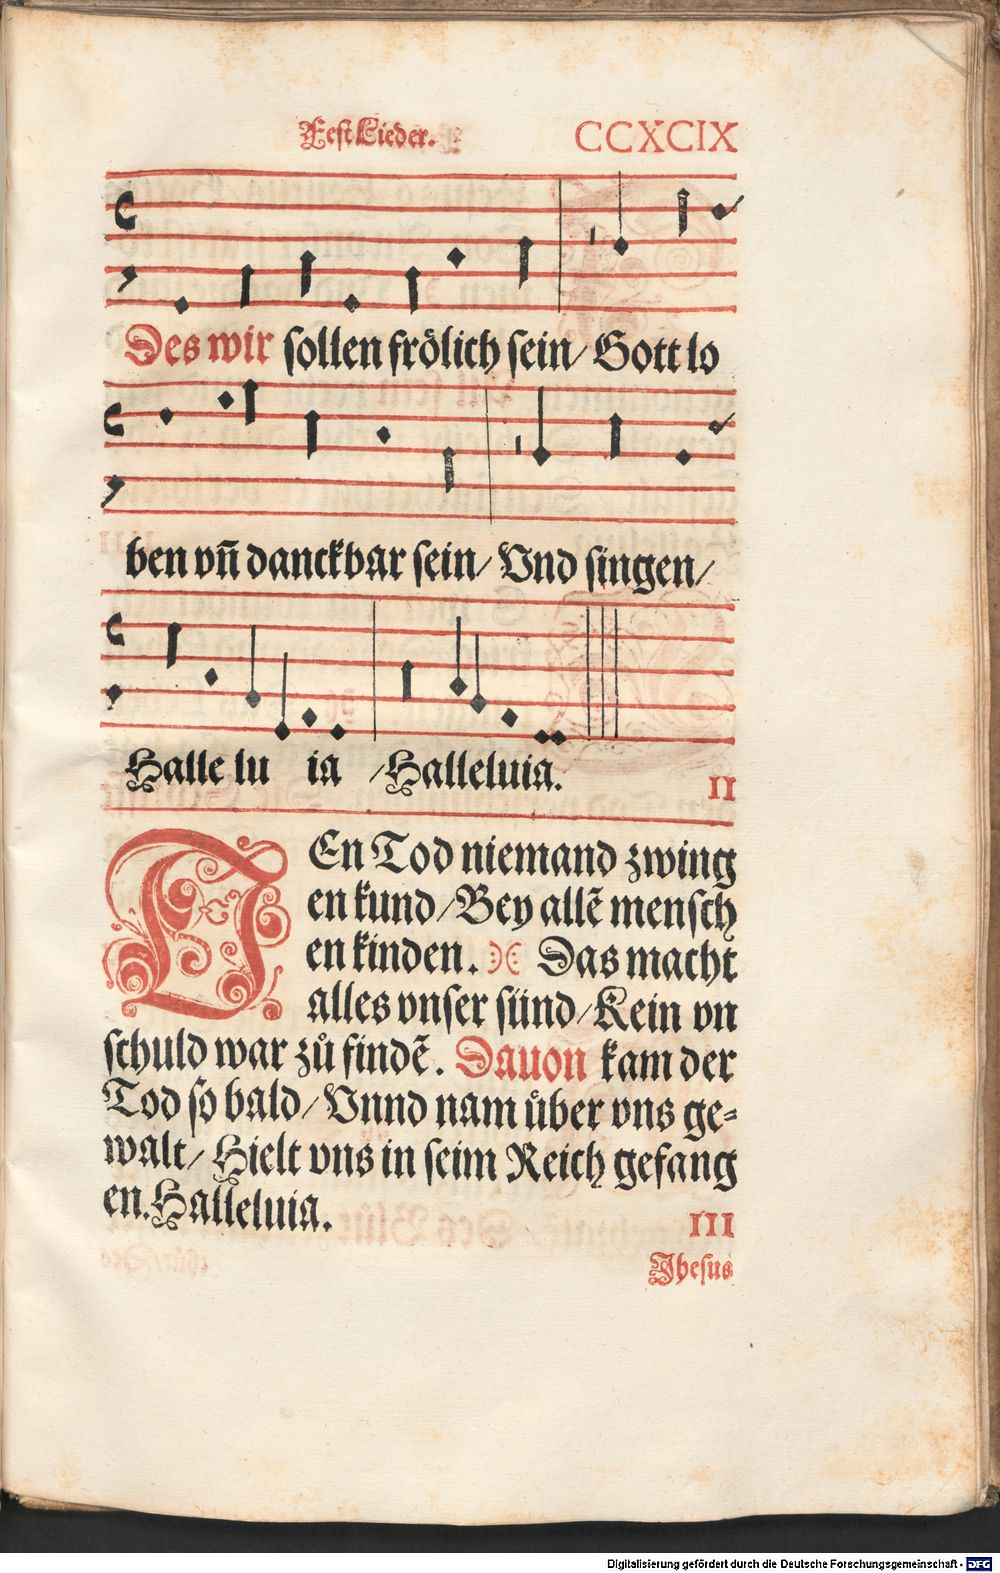 FestLieder. CCXCIX
Des wir sollen frölich sein/ Gott lo
ben vn̄ danckbar sein/ Vnd singen/
Halle lu ia /Halleluia.
II
DEn Tod niemand zwing
en kund/Bey allē mensch
en kinden. Das macht
alles vnser sünd/Kein vn
schuld war zů findē. Dauon kam der
Tod so bald/Vnnd nam über vns ge⸗
walt/ Hielt vns in seim Reich gefang
en.Halleluia.
III
Jhesus
Digitalisierung gefördert durch die Deutsche Forschungsgemeinschaft - DFG